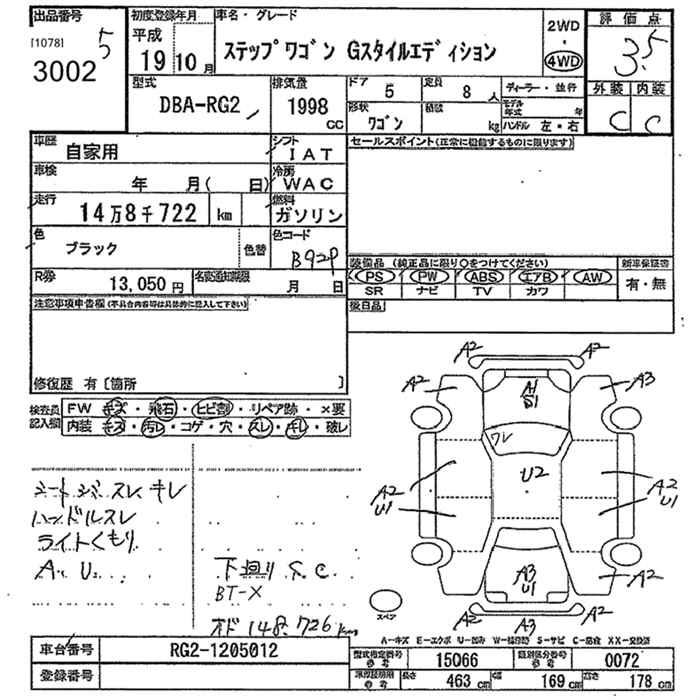 出品番号 初度登録年月 車名・グレード 評価点
[1078] 5 平成 ステップワゴン Gスタイルエディション 2WD・4WD 3.5
3002 19 10月
型式 排気量 ドア 5 定員 8人 ディーラー・並行 外装 内装
DBA-RG2 1998cc 形状 ワゴン 積載 kg モデル年式 年 C C
ハンドル 左・右
車歴 自家用 シフト IAT セールスポイント(正常に稼働するものに限ります)
車検 年 月( 日) 冷房 WAC
走行 14万8千722 km 燃料 ガソリン
色 ブラック 色替 色コード B92P
装備品 (純正品に限り○をつけてください) 新車保証書
PS PW ABS エアB AW 有・無
SR ナビ TV カワ
R券 13,050円 名変通知期限 月 日
後日品
注意事項申告欄(不具合内容等は具体的に記入して下さい)
修復歴 有[箇所 ]
検査員記入欄 FW キズ・飛石・ヒビ割・リペア跡・×要
内装 キズ・汚レ・コゲ・穴・スレ・キレ・破レ
A2 A2
A2 A3
A1
ワレ
U2
A2 U1 A2 U1
A3 U1
A2 A2
A2 A3 A2
スペア
シートジミ スレ キレ
ハンドルスレ
ライトくもり
A U
下廻り S.C
BT-X
オド 148.726km
A-キズ E-エクボ U-凹み W-補修跡 S-サビ C-腐食 XX-交換済
車台番号 RG2-1205012 型式指定番号 参考 15066 類別区分番号 参考 0072
登録番号 長さ 463cm 幅 169cm 高さ 178cm